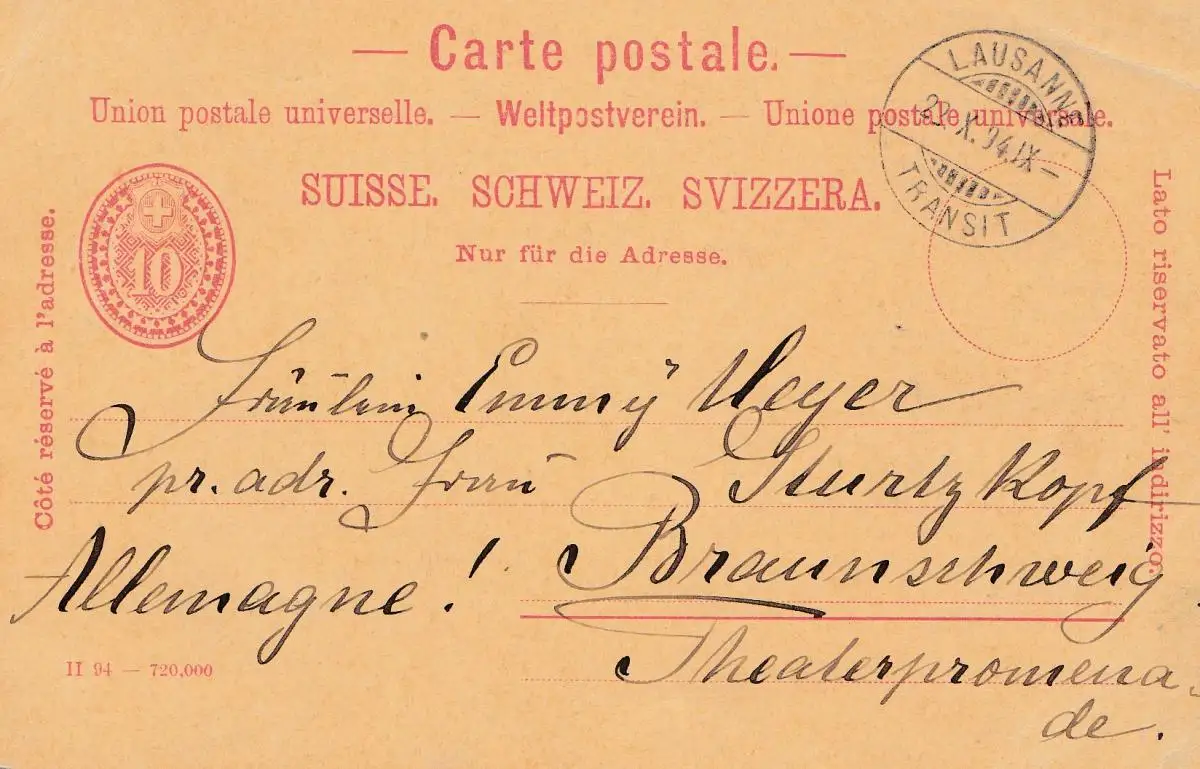 — Carte postale. —
Union postale universelle. — Weltpostverein. — Unione postale universale.
SUISSE. SCHWEIZ. SVIZZERA.
Nur für die Adresse.
Côté réservé à l'adresse.
10
LAUSANNE
X.94.IX—
TRANSIT
Lato riservato all' indirizzo.
Fräulein Emmy Meyer
pr. adr. Frau Sturtzkopf
Allemagne! Braunschweig
Theaterpromena-
de.
II 94 — 720,000